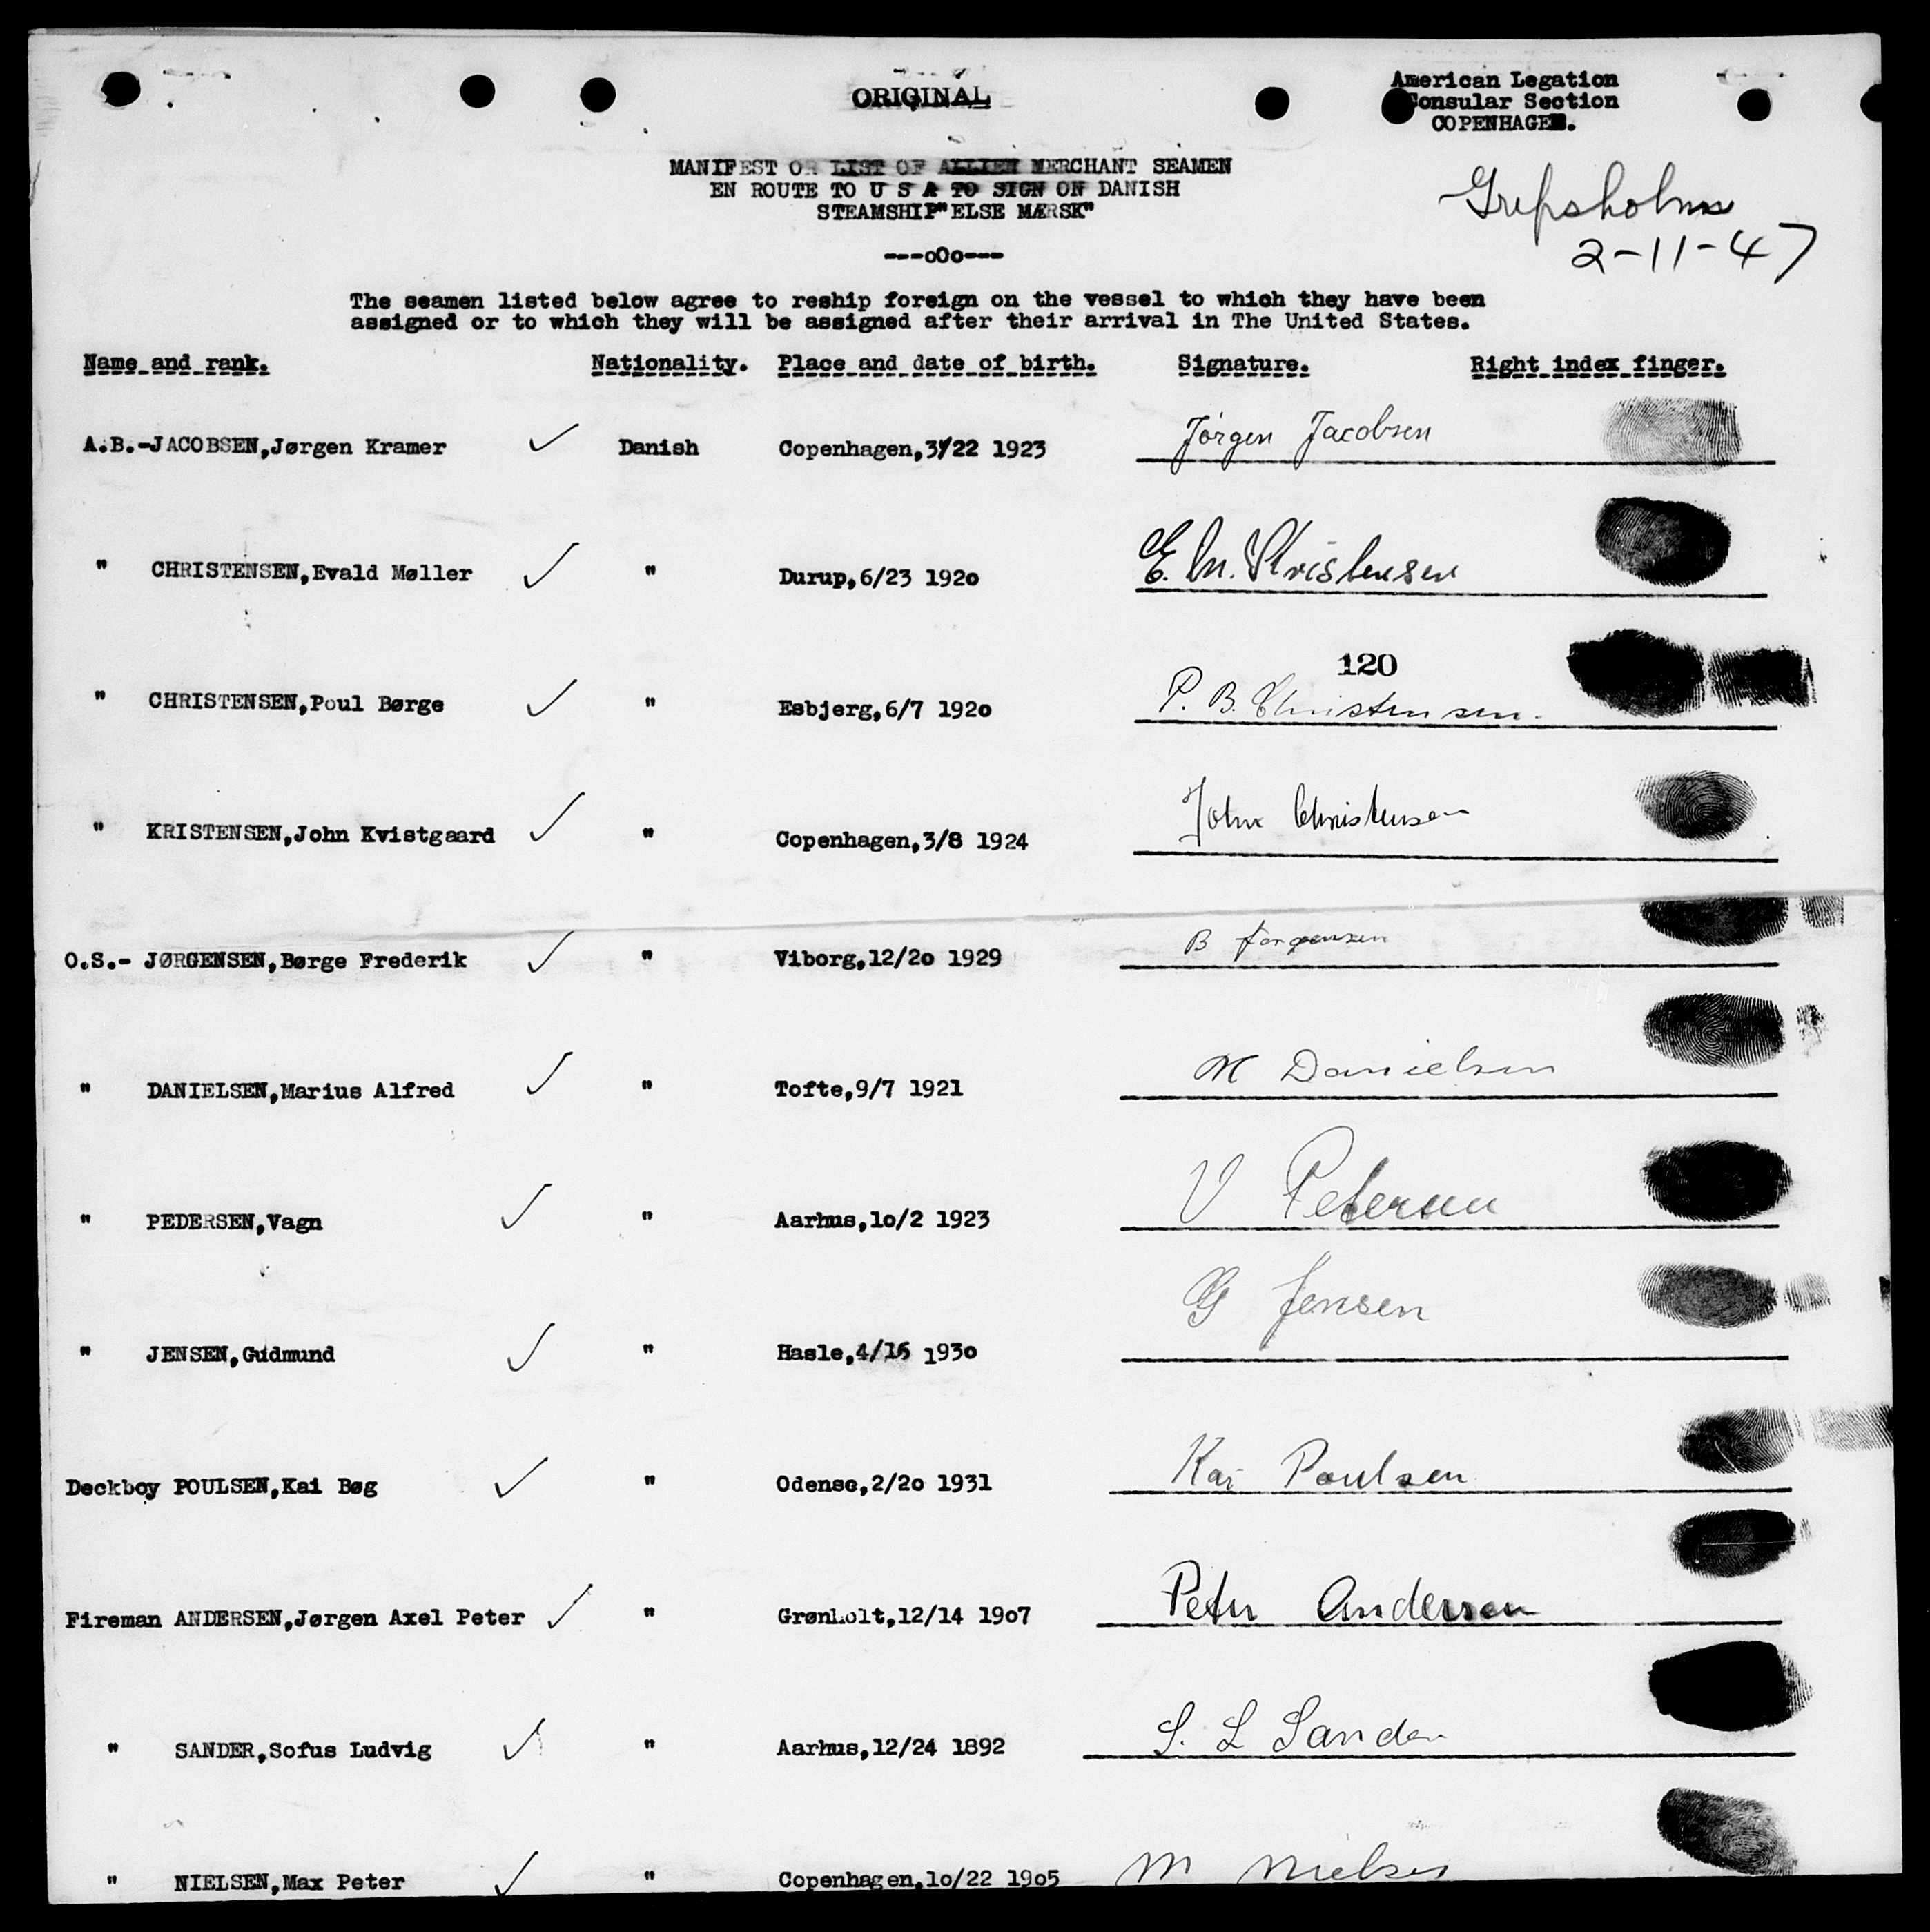 ORIGINAL
American Legation
Consular Section
COPENHAGEN.
MANIFEST OR LIST OF ALLIEN MERCHANT SEAMEN
EN ROUTE TO U S A TO SIGN ON DANISH
STEAMSHIP"ELSE MÆRSK"
Gripsholm
2-11-47
---oOo---
The seamen listed below agree to reship foreign on the vessel to which they have been
assigned or to which they will be assigned after their arrival in The United States.
Name and rank. Nationality. Place and date of birth. Signature. Right index finger.
A.B.-JACOBSEN,Jørgen Kramer ✓ Danish Copenhagen, 1923 Jörgen Jacobsen
" CHRISTENSEN,Evald Møller ✓ " Durup,6/23 1920 E. M. Christensen
120
" CHRISTENSEN,Poul Børge ✓ " Esbjerg,6/7 1920 P. B. Christensen.
" KRISTENSEN,John Kvistgaard ✓ " Copenhagen,3/8 1924 John Christensen
O.S.- JØRGENSEN,Børge Frederik ✓ " Viborg,12/20 1929 B Jørgensen
" DANIELSEN,Marius Alfred ✓ " Tofte,9/7 1921 M Danielsen
" PEDERSEN,Vagn ✓ " Aarhus,10/2 1923 V Petersen
" JENSEN,Gudmund ✓ " Hasle,4/16 1930 G Jensen
Deckboy POULSEN,Kai Bøg ✓ " Odense,2/20 1931 Kai Poulsen
Fireman ANDERSEN,Jørgen Axel Peter ✓ " Grønholt,12/14 1907 Peter Andersen
" SANDER,Sofus Ludvig ✓ " Aarhus,12/24 1892 S. L Sander
" NIELSEN,Max Peter ✓ " Copenhagen,10/22 1905 M Nielsen